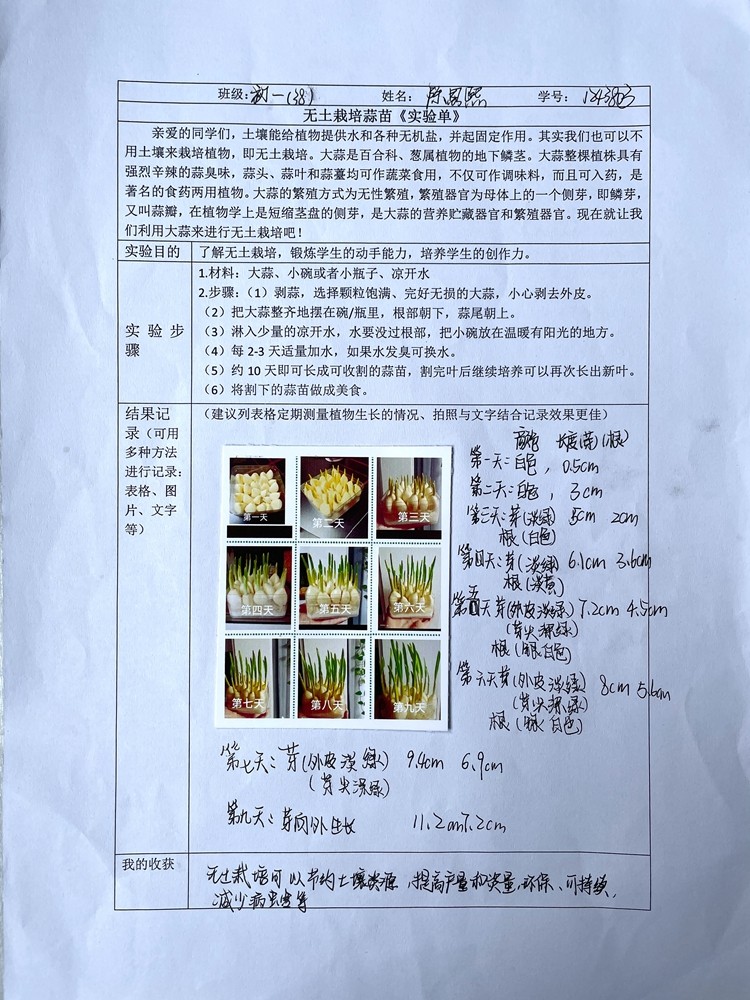 班级: 初一(38) 姓名: 学号:
无土栽培蒜苗《实验单》
亲爱的同学们，土壤能给植物提供水和各种无机盐，并起固定作用。其实我们也可以不
用土壤来栽培植物，即无土栽培。大蒜是百合科、葱属植物的地下鳞茎。大蒜整棵植株具有
强烈辛辣的蒜臭味，蒜头、蒜叶和蒜薹均可作蔬菜食用，不仅可作调味料，而且可入药，是
著名的食药两用植物。大蒜的繁殖方式为无性繁殖，繁殖器官为母体上的一个侧芽，即鳞芽，
又叫蒜瓣，在植物学上是短缩茎盘的侧芽，是大蒜的营养贮藏器官和繁殖器官。现在就让我
们利用大蒜来进行无土栽培吧！
实验目的
了解无土栽培，锻炼学生的动手能力，培养学生的创作力。
实验步
骤
1.材料：大蒜、小碗或者小瓶子、凉开水
2.步骤：（1）剥蒜，选择颗粒饱满、完好无损的大蒜，小心剥去外皮。
（2）把大蒜整齐地摆在碗/瓶里，根部朝下，蒜尾朝上。
（3）淋入少量的凉开水，水要没过根部，把小碗放在温暖有阳光的地方。
（4）每 2-3 天适量加水，如果水发臭可换水。
（5）约 10 天即可长成可收割的蒜苗，割完叶后继续培养可以再次长出新叶。
（6）将割下的蒜苗做成美食。
结果记
录（可用
多种方法
进行记录：
表格、图
片、文字
等）
（建议列表格定期测量植物生长的情况、拍照与文字结合记录效果更佳）
第一天
第二天
第三天
第四天
第五天
第六天
第七天
第八天
第九天
颜色 长度(苗)(根)
第一天：白色，0.5cm
第二天：白色，3cm
第三天：芽(淡绿) 5cm 2cm
根(白色)
第四天：芽(淡绿) 6.1cm 3.6cm
根(淡黄)
第五天 芽(外皮淡绿) 7.2cm 4.5cm
(芽尖深绿)
根(白色)
第六天 芽(外皮淡绿) 8cm 5.6cm
(芽尖深绿)
根(白色)
第七天：芽(外皮淡绿) 9.4cm 6.9cm
(芽尖深绿)
第九天：芽向外生长 11.2cm 7.2cm
我的收获
无土栽培可以节约土壤资源，提高产量和质量，环保、可持续，
减少病虫害等